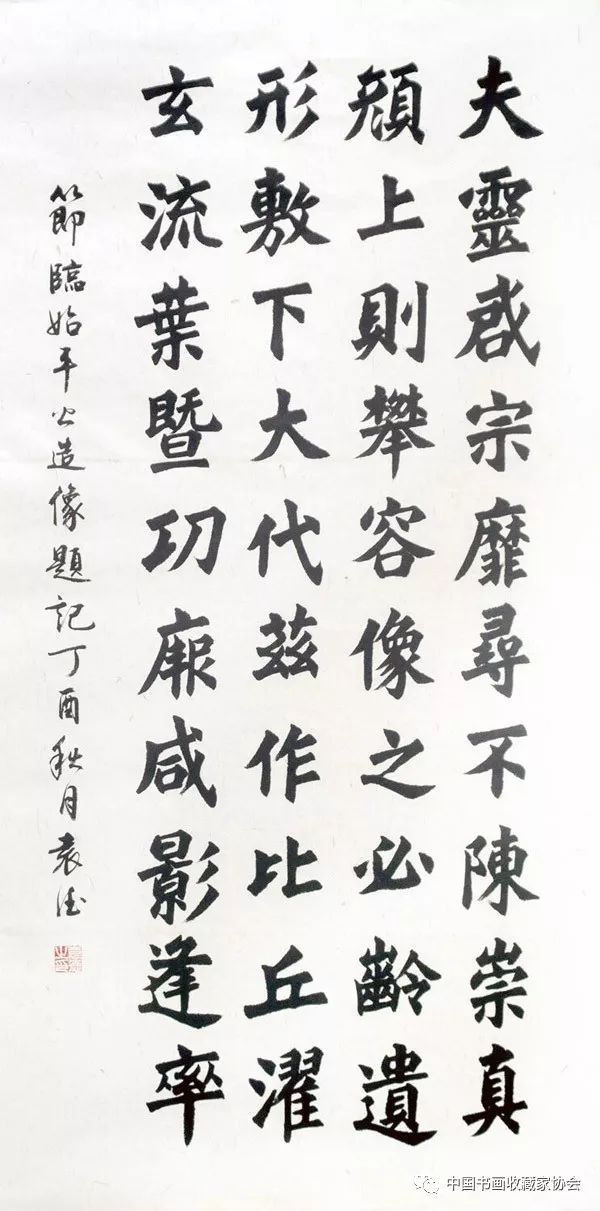 夫靈啟宗靡尋不陳崇真
顏上則攀容像之必齡遺
形敷下大代茲作比丘濯
玄流葉暨功厥咸影逢率
節臨始平公造像題記丁酉秋月袁
中国书画收藏家协会